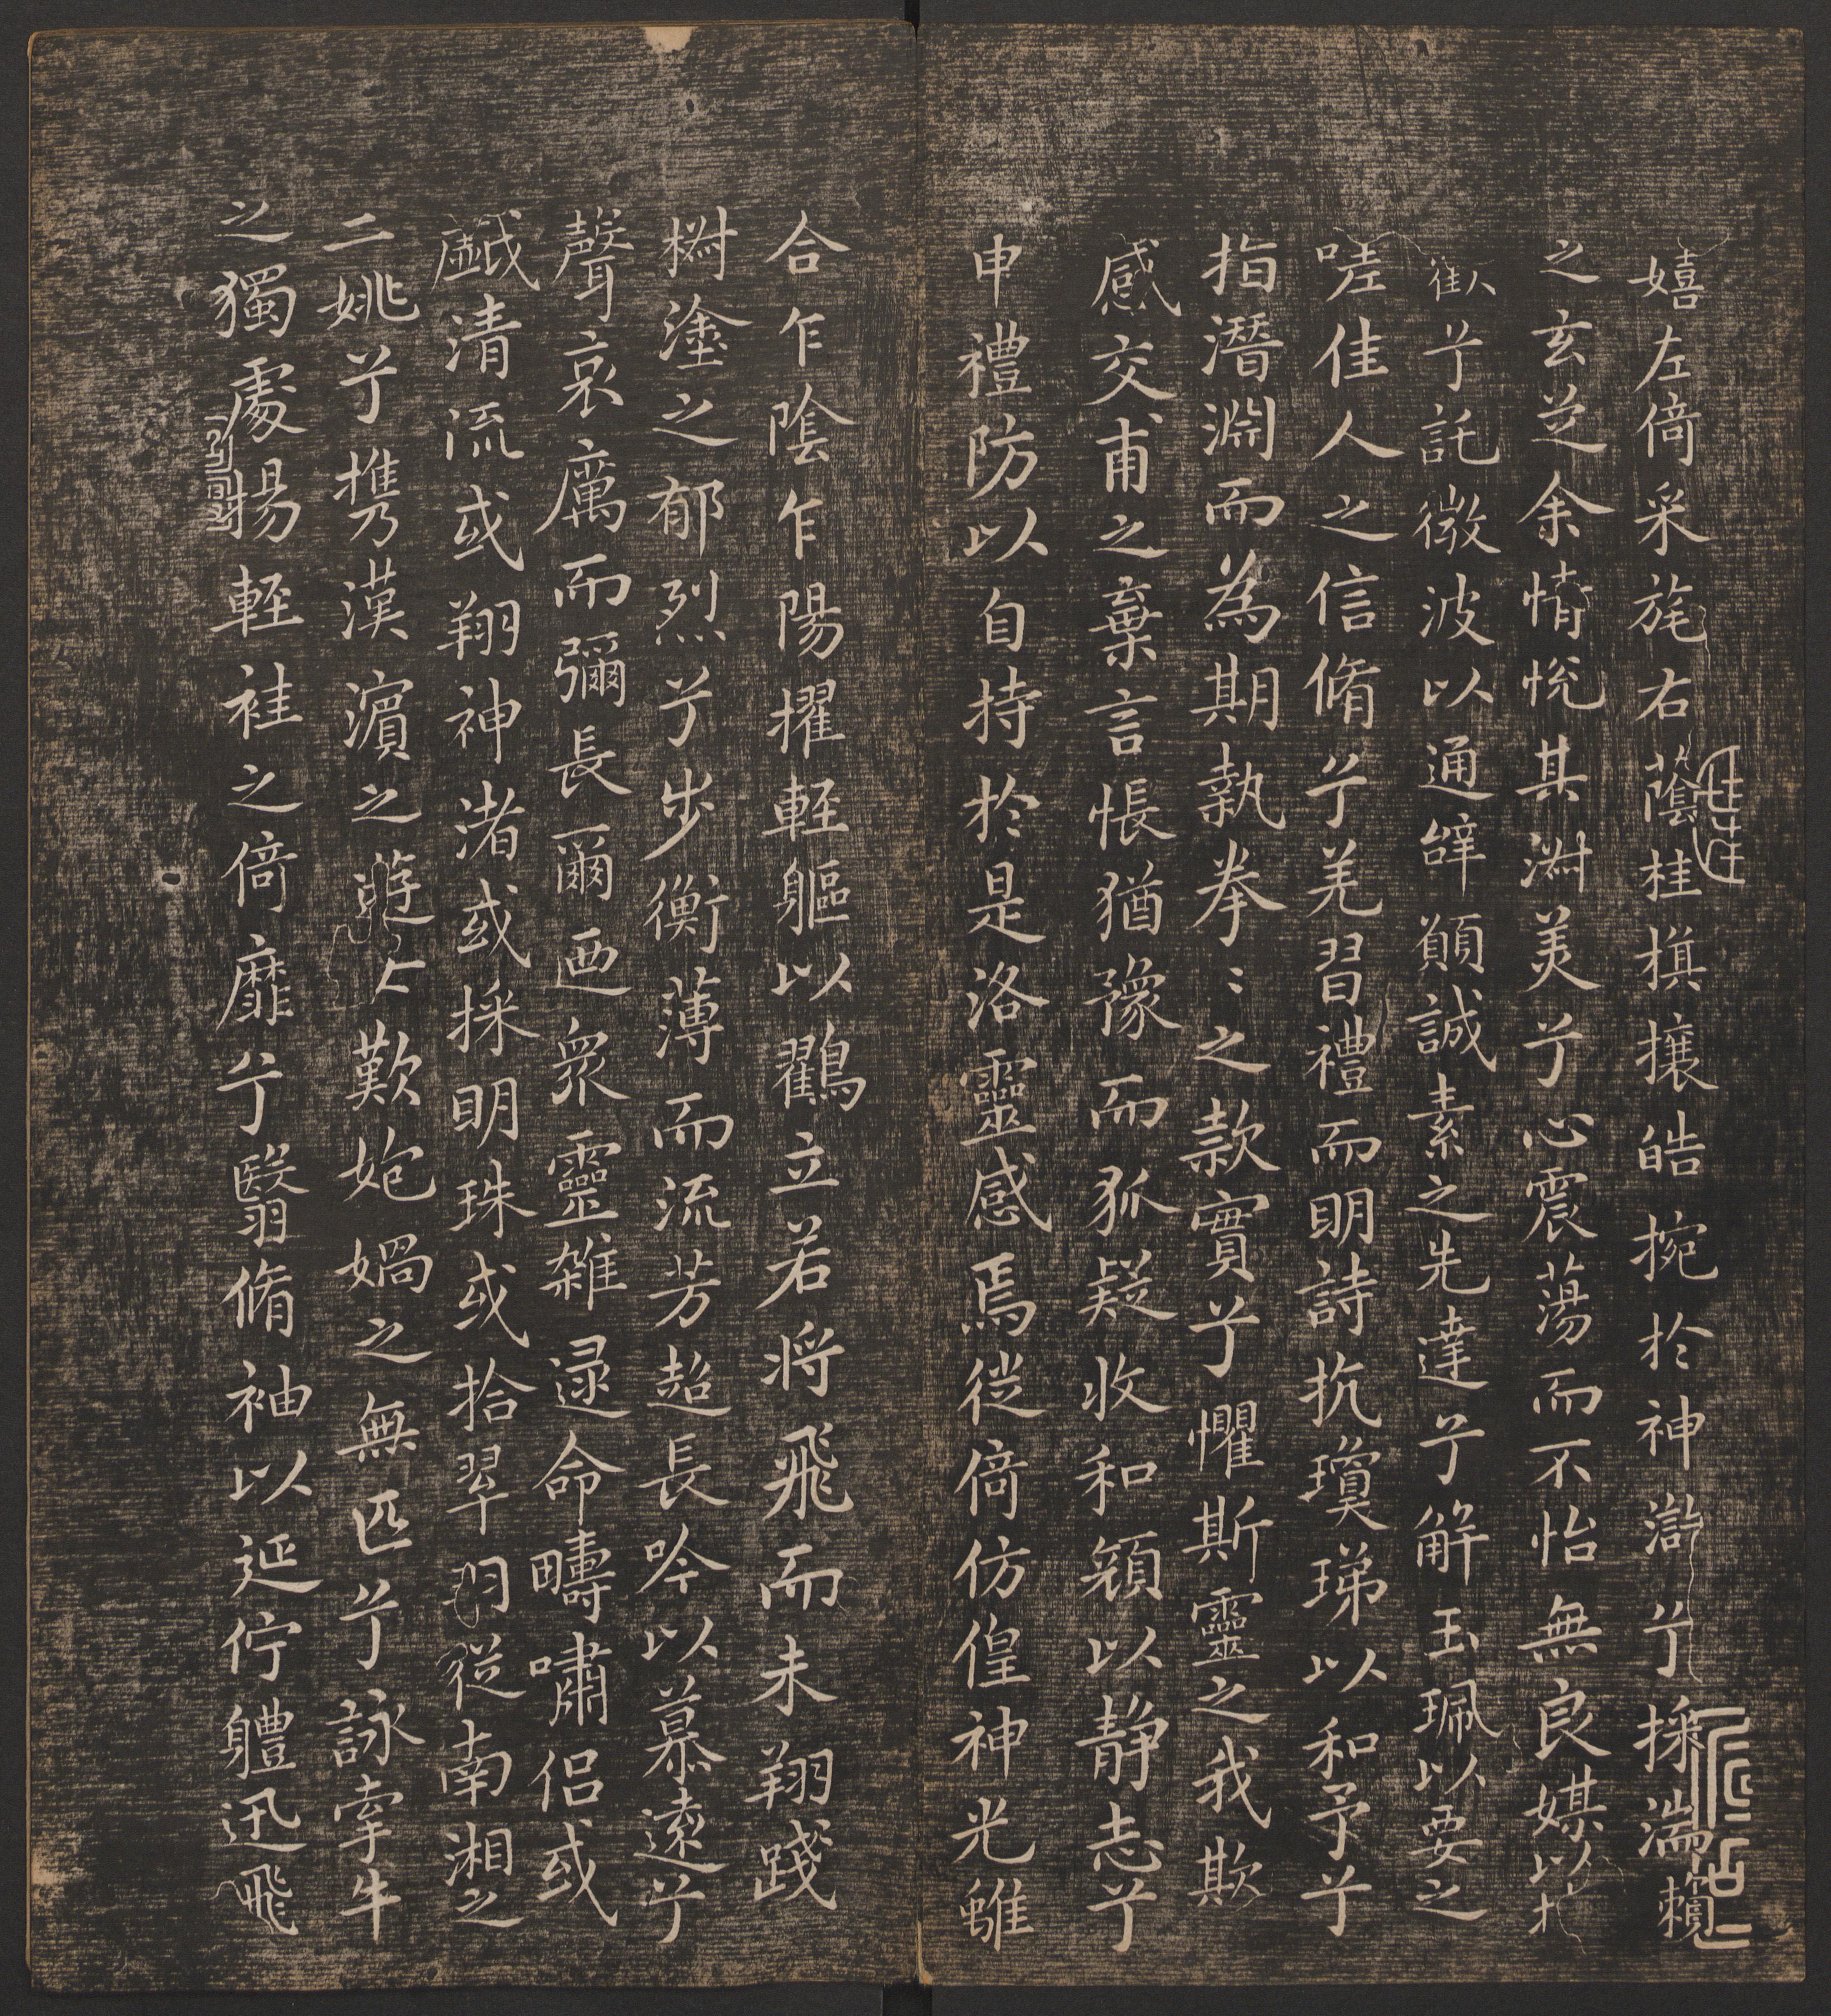 嬉左倚采旄右蔭桂旗攘皓捥於神滸兮採湍瀨
之玄芝余情悅其淑美兮心震蕩而不怡無良媒以
歡兮託微波以通辭願誠素之先達兮解玉珮以要之
嗟佳人之信脩兮羌習禮而明詩抗瓊珶以和予兮
指潛淵而為期執拳〻之款實兮懼斯靈之我欺
感交甫之棄言悵猶豫而狐疑收和顏以靜志兮
申禮防以自持於是洛靈感焉徙倚仿偟神光離
合乍陰乍陽擢輕軀以鸖立若將飛而未翔踐
椒塗之郁烈兮步衡薄而流芳超長吟以慕遠兮
聲哀厲而彌長爾迺衆靈雜遝命疇嘯侣或
戲清流或翔神渚或採明珠或拾翠羽從南湘之
二姚兮攜漢濱之遊女歎匏媧之無匹兮詠牽牛
之獨處揚輕袿之倚靡兮翳脩袖以延佇軆迅飛